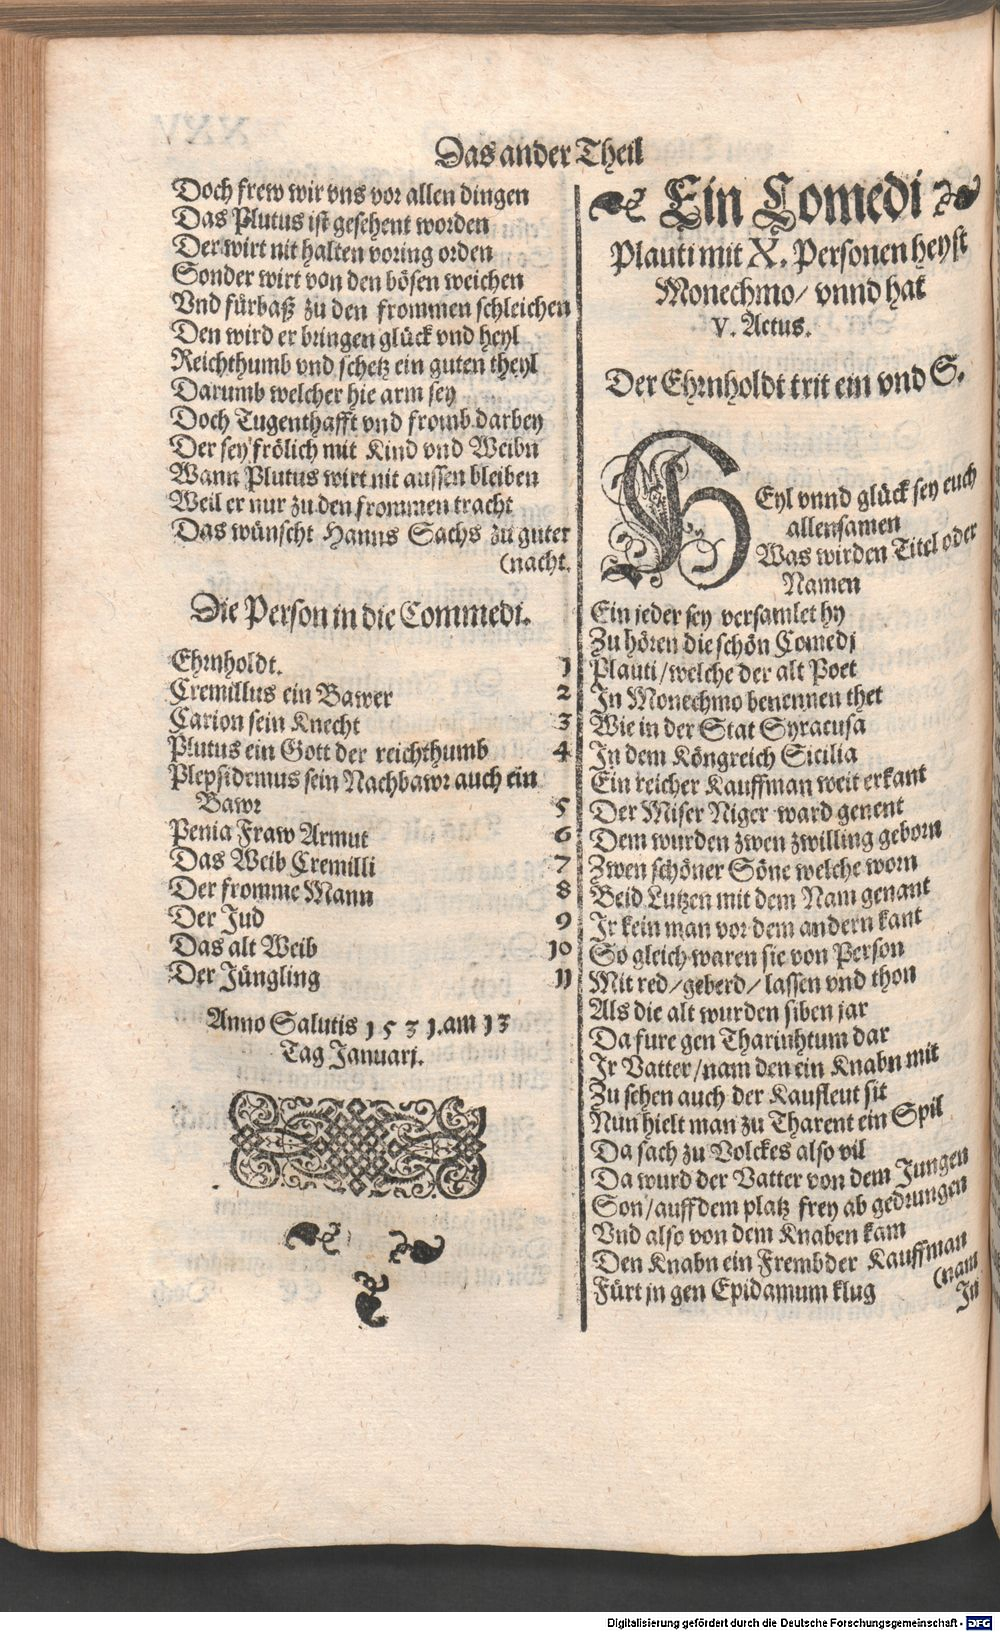 Das ander Theil
Doch frew wir vns vor allen dingen
Das Plutus ist gesehent worden
Der wirt nit halten voring orden
Sonder wirt von den bösen weichen
Vnd fürbaß zu den frommen schleichen
Den wird er bringen glück vnd heyl
Reichthumb vnd schetz ein guten theyl
Darumb welcher hie arm sey
Doch Tugenthafft vnd fromb darbey
Der sey frölich mit Kind vnd Weibn
Wann Plutus wirt nit aussen bleiben
Weil er nur zu den frommen tracht
Das wünscht Hanns Sachs zu guter
(nacht.
Die Person in die Commedi.
Ehrnholdt. 1
Cremillus ein Bawer 2
Carion sein Knecht 3
Plutus ein Gott der reichthumb 4
Plepsidemus sein Nachbawr auch ein
Bawr 5
Penia Fraw Armut 6
Das Weib Cremilli 7
Der fromme Mann 8
Der Jud 9
Das alt Weib 10
Der Jüngling 11
Anno Salutis 1531. am 13
Tag Januarj.
Ein Comedi
Plauti mit X. Personen heyst
Monechmo/ vnnd hat
V. Actus.
Der Ehrnholdt trit ein vnd S.
HEyl vnnd glück sey euch
allensamen
Was wirden Titel oder
Namen
Ein jeder sey versamlet hy
Zu hören die schön Comedj
Plauti/welche der alt Poet
In Monechmo benennen thet
Wie in der Stat Syracusa
In dem Köngreich Sicilia
Ein reicher Kauffman weit erkant
Der Miser Niger ward genent
Dem wurden zwen zwilling geborn
Zwen schöner Söne welche worn
Beid Lutzen mit dem Nam genant
Ir kein man vor dem andern kant
So gleich waren sie von Person
Mit red/geberd/lassen vnd thon
Als die alt wurden siben jar
Da fure gen Tharinhtum dar
Ir Vatter/nam den ein Knabn mit
Zu sehen auch der Kaufleut sit
Nun hielt man zu Tharent ein Spil
Da sach zu Volckes also vil
Da wurd der Vatter von dem Jungen
Son/auff dem platz frey ab gedrungen
Vnd also von dem Knaben kam
Den Knabn ein Frembder Kauffman
(nam
Fürt jn gen Epidamum klug
In
Digitalisierung gefördert durch die Deutsche Forschungsgemeinschaft - DFG